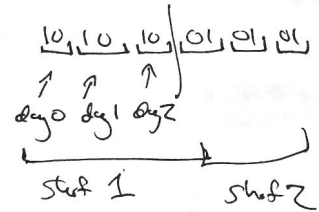 10 10 10 01 01 01
day0 day1 day2
staf 1 staf 2